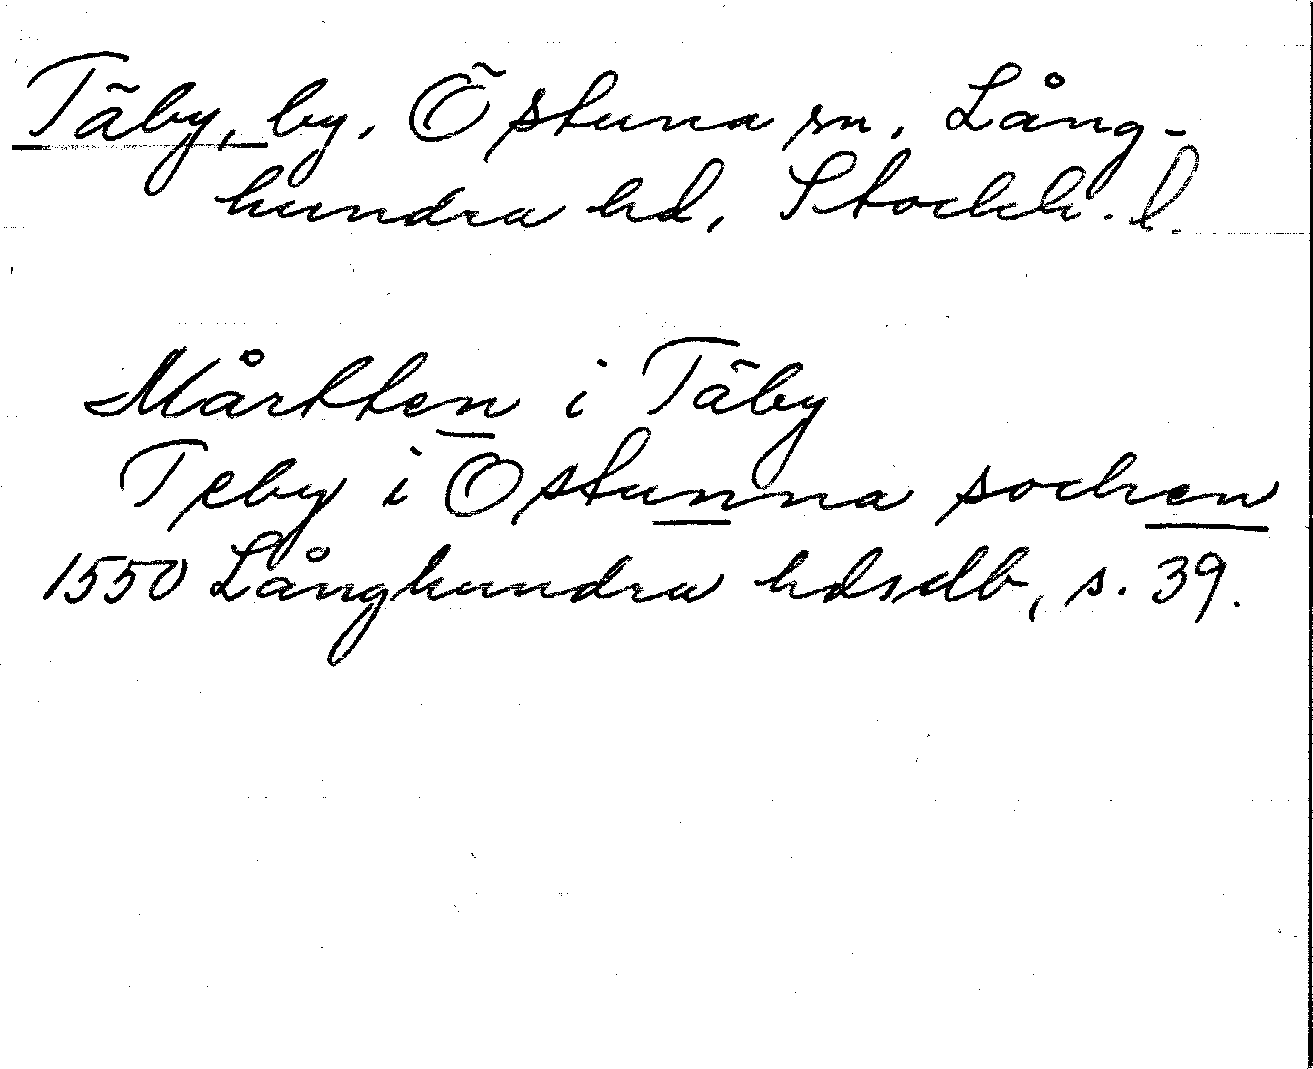 Täby, by, Östuna sn, Lång-
hundra hd, Stockh. l.
Mårtten i Täby
Teby i Ostunna socken
1550 Långhundra hdsdb, s. 39.